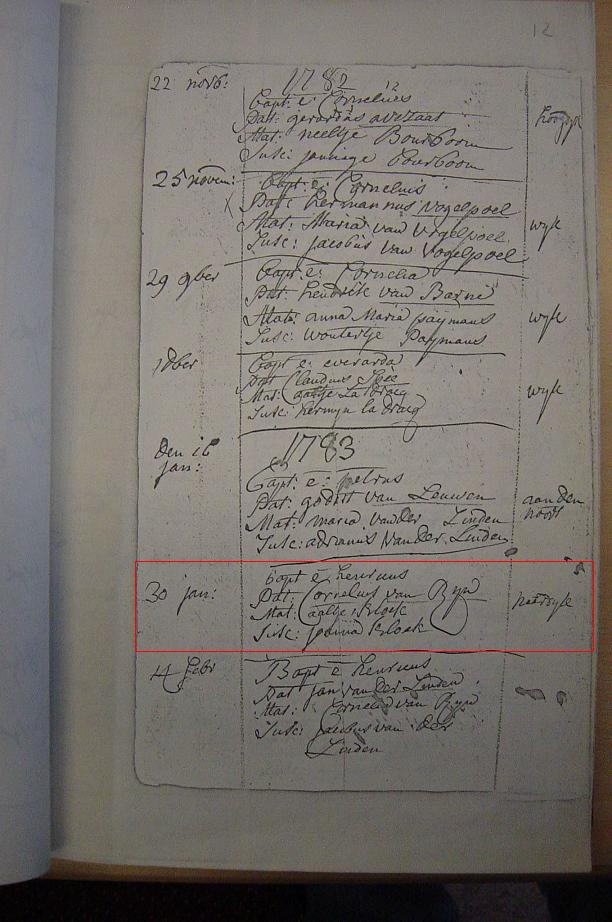 12
1782
22 novb: Bapt: e: Cornelius
Pat: gerardus averzaat
Mat: neeltje Bourboom
Susc: jannige bourboom
25 novem: Bapt: e: Cornelius
Pat: hermannus Vogelpoel
Mat: Maria van Vogelpoel wyk
Susc: jacobus van Vogelpoel
29 9ber Bapt: e: Cornelia
Pat: hendrik van Barne
Mat: anna Maria paymans wyk
Susc: woutertje Paymans
1 dber Bapt e: everarda
Pat Claudius
Mat: la wyk
Susc: hermyn la
1783
Den 16 jan:
Bapt: e: petrus
Pat: godert van Leuwen aan den
Mat: maria vander Linden
Susc: adrianus Van der Linden
30 jan: bapt e henricus
Pat: Cornelius van Ryn
Mat: aaltje Kloek
Susc: joanna Kloek
14 febr Bapt e henricus
Pat jan van der Linden
Mat: Cornelia van Ryn
Susc: jacobus van der
Linden